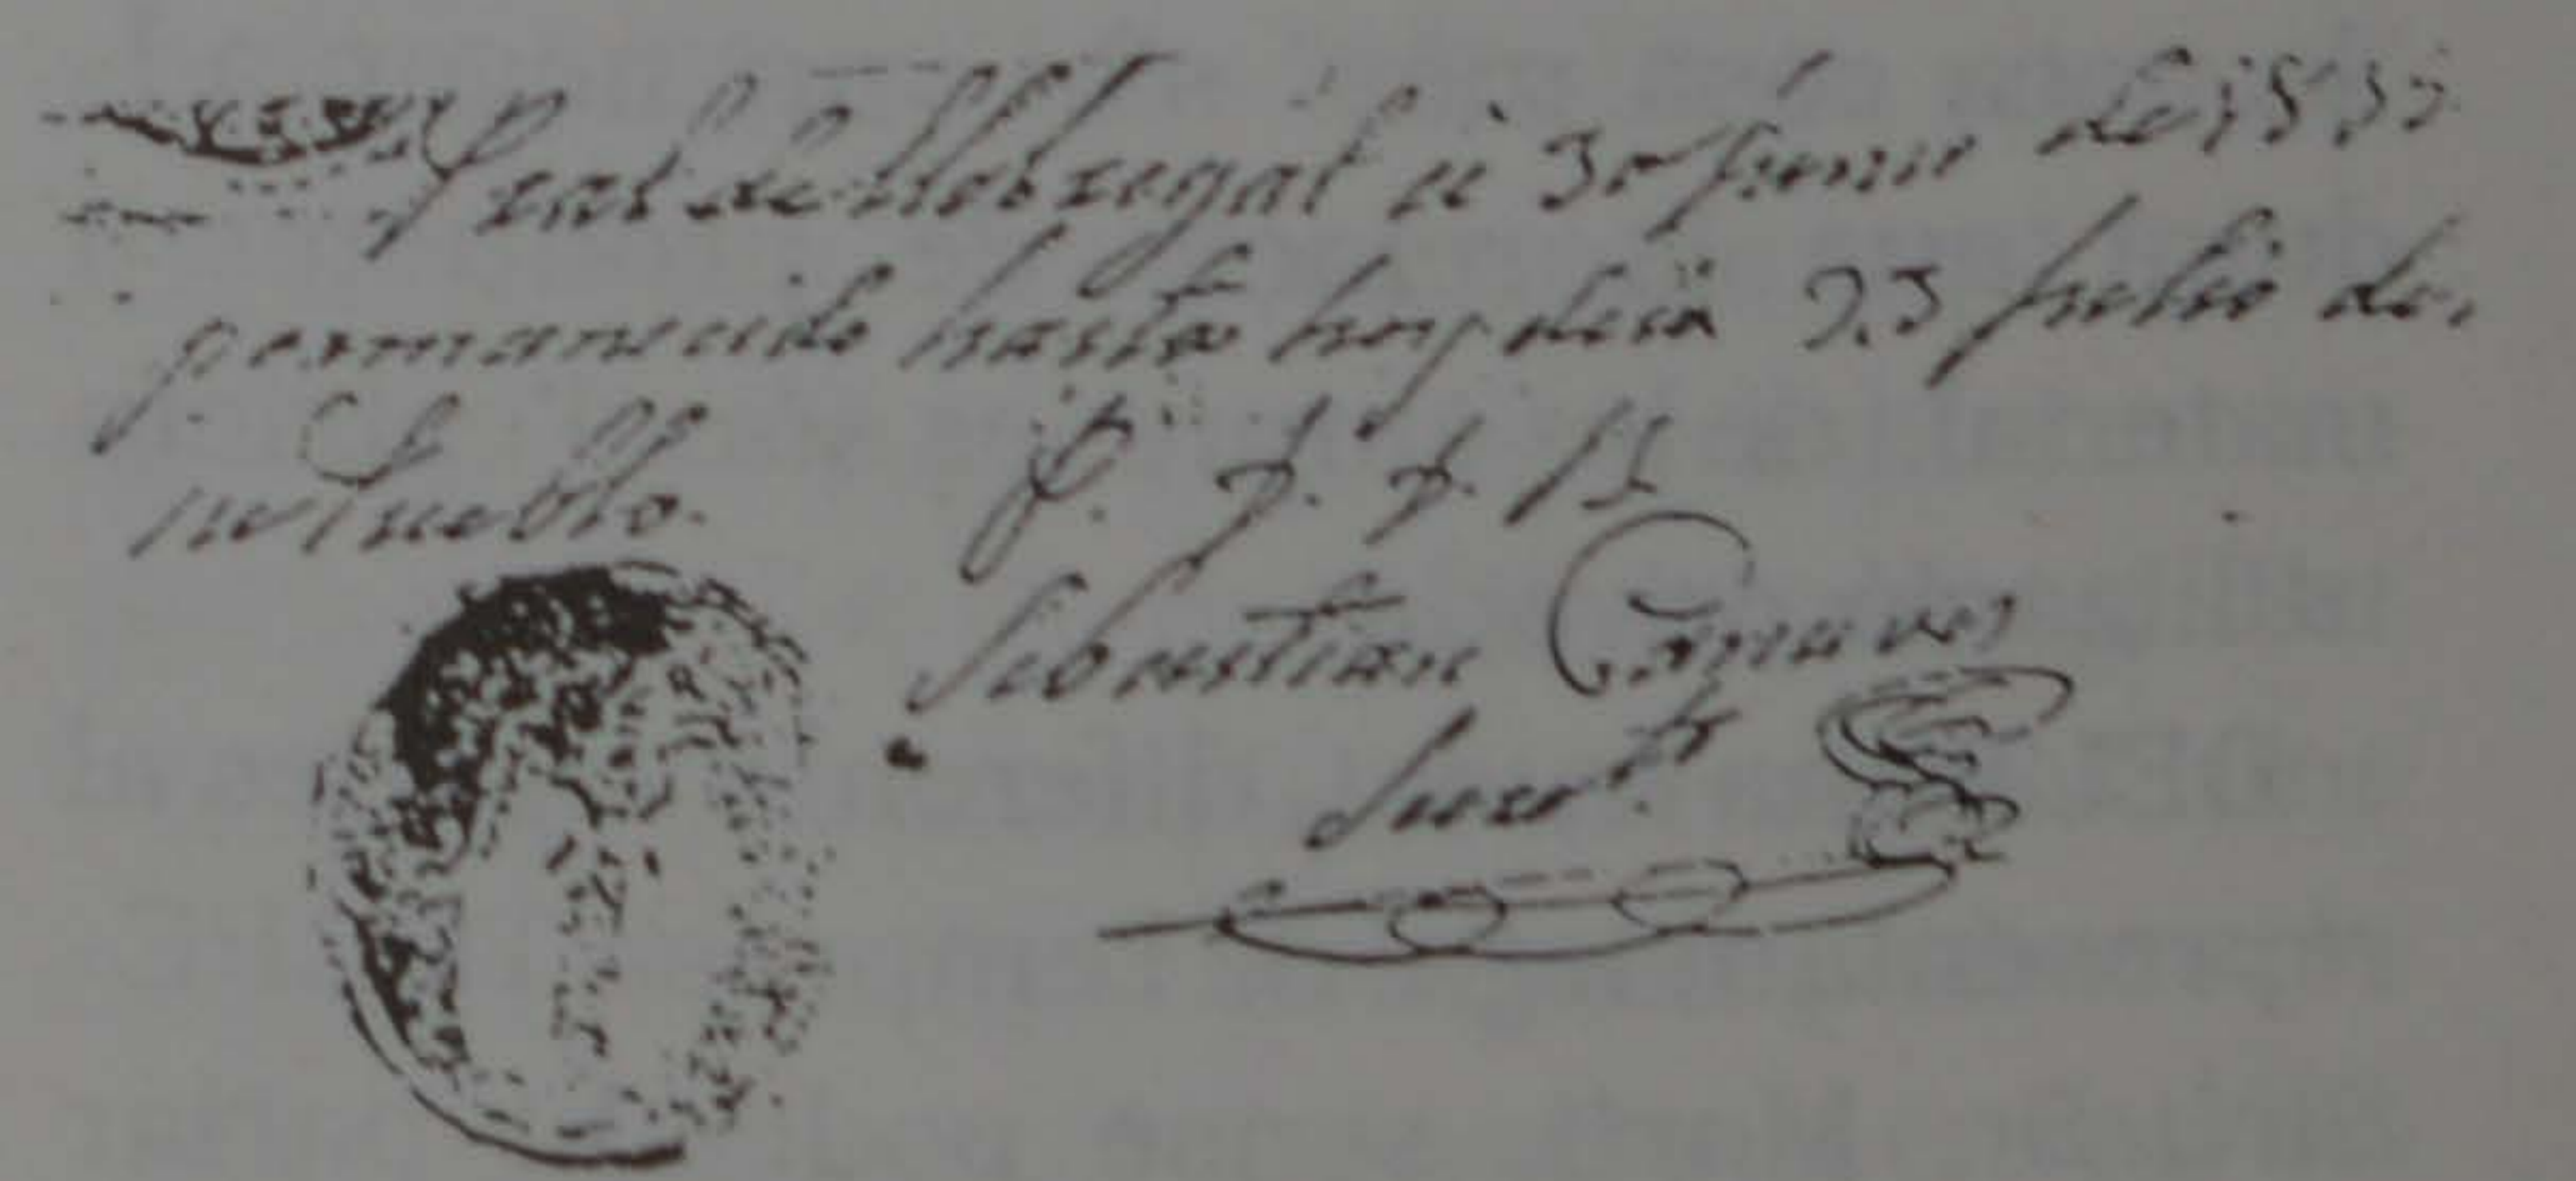 Prat de Llobregat à 30 Junio de 1835
permanecido hasta hoy dia 23 Julio de
Pueblo.
P. J. J. B.
Sebastian
Secret.